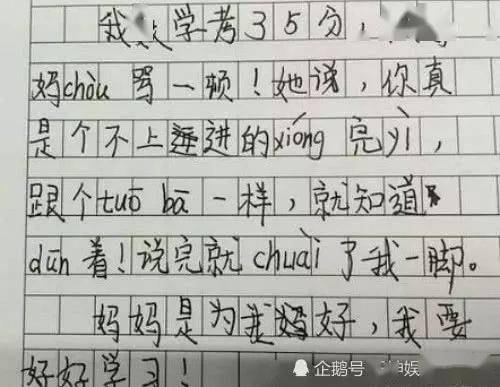 我数学考35分，
妈chòu骂一顿！她说，你真
是个不上进的xióng完yì，
跟个tuō bā一样，就知道
dūn着！说完就chuài了我一脚。
妈妈是为我好，我要
好好学习！
企鹅号 娱